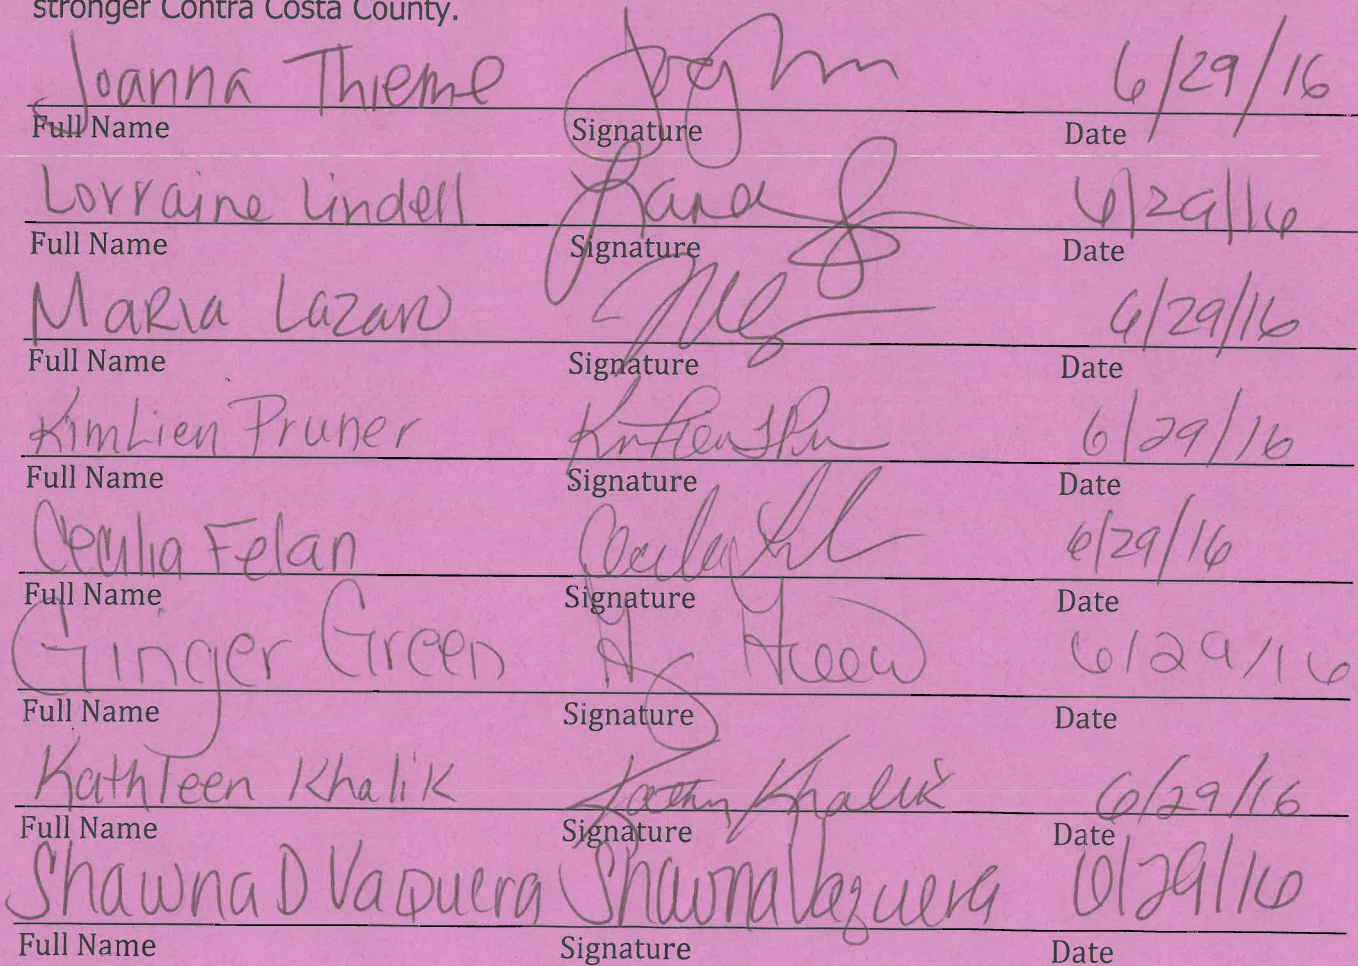 stronger Contra Costa County.
Joanna Thieme 6/29/16
Full Name Signature Date
Lorraine Lindell 6/29/16
Full Name Signature Date
Maria Lazaro 6/29/16
Full Name Signature Date
KimLien Pruner 6/29/16
Full Name Signature Date
Cecilia Felan 6/29/16
Full Name Signature Date
Ginger Green Green 6/29/16
Full Name Signature Date
Kathleen Khalik Kathy Khalik 6/29/16
Full Name Signature Date
Shawna D Vaquera Shawna Vaquera 6/29/16
Full Name Signature Date